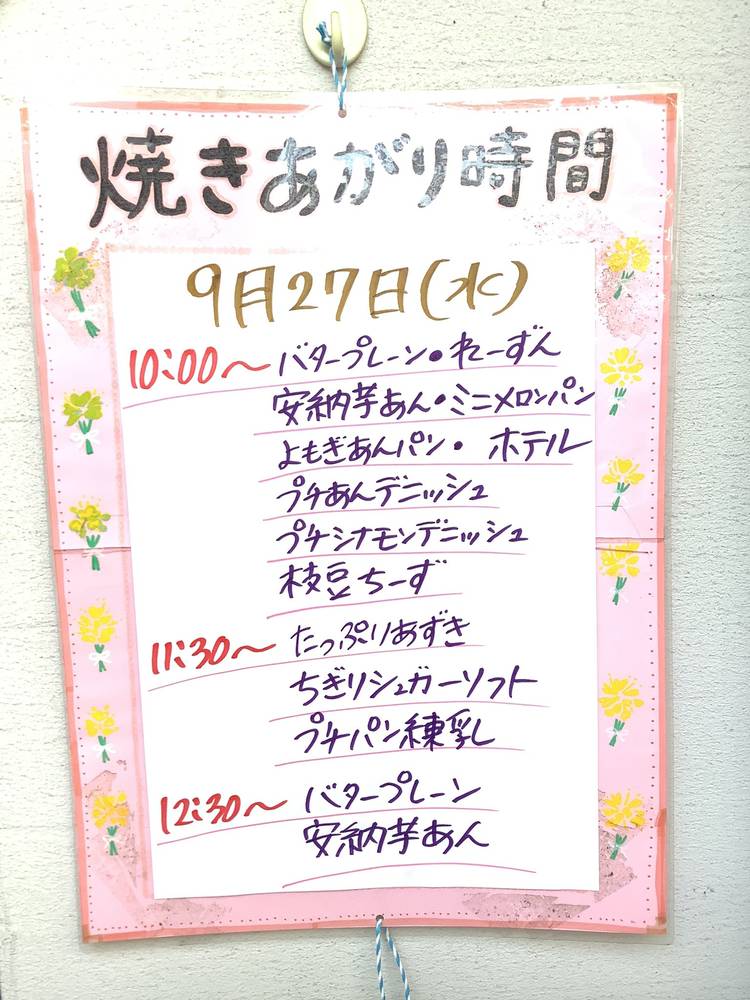 焼きあがり時間
9月27日(水)
10:00〜 バタープレーン・れーずん
安納芋あん・ミニメロンパン
よもぎあんパン・ ホテル
プチあんデニッシュ
プチシナモンデニッシュ
枝豆ちーず
11:30〜 たっぷりあずき
ちぎりシュガーソフト
プチパン練乳
12:30〜 バタープレーン
安納芋あん